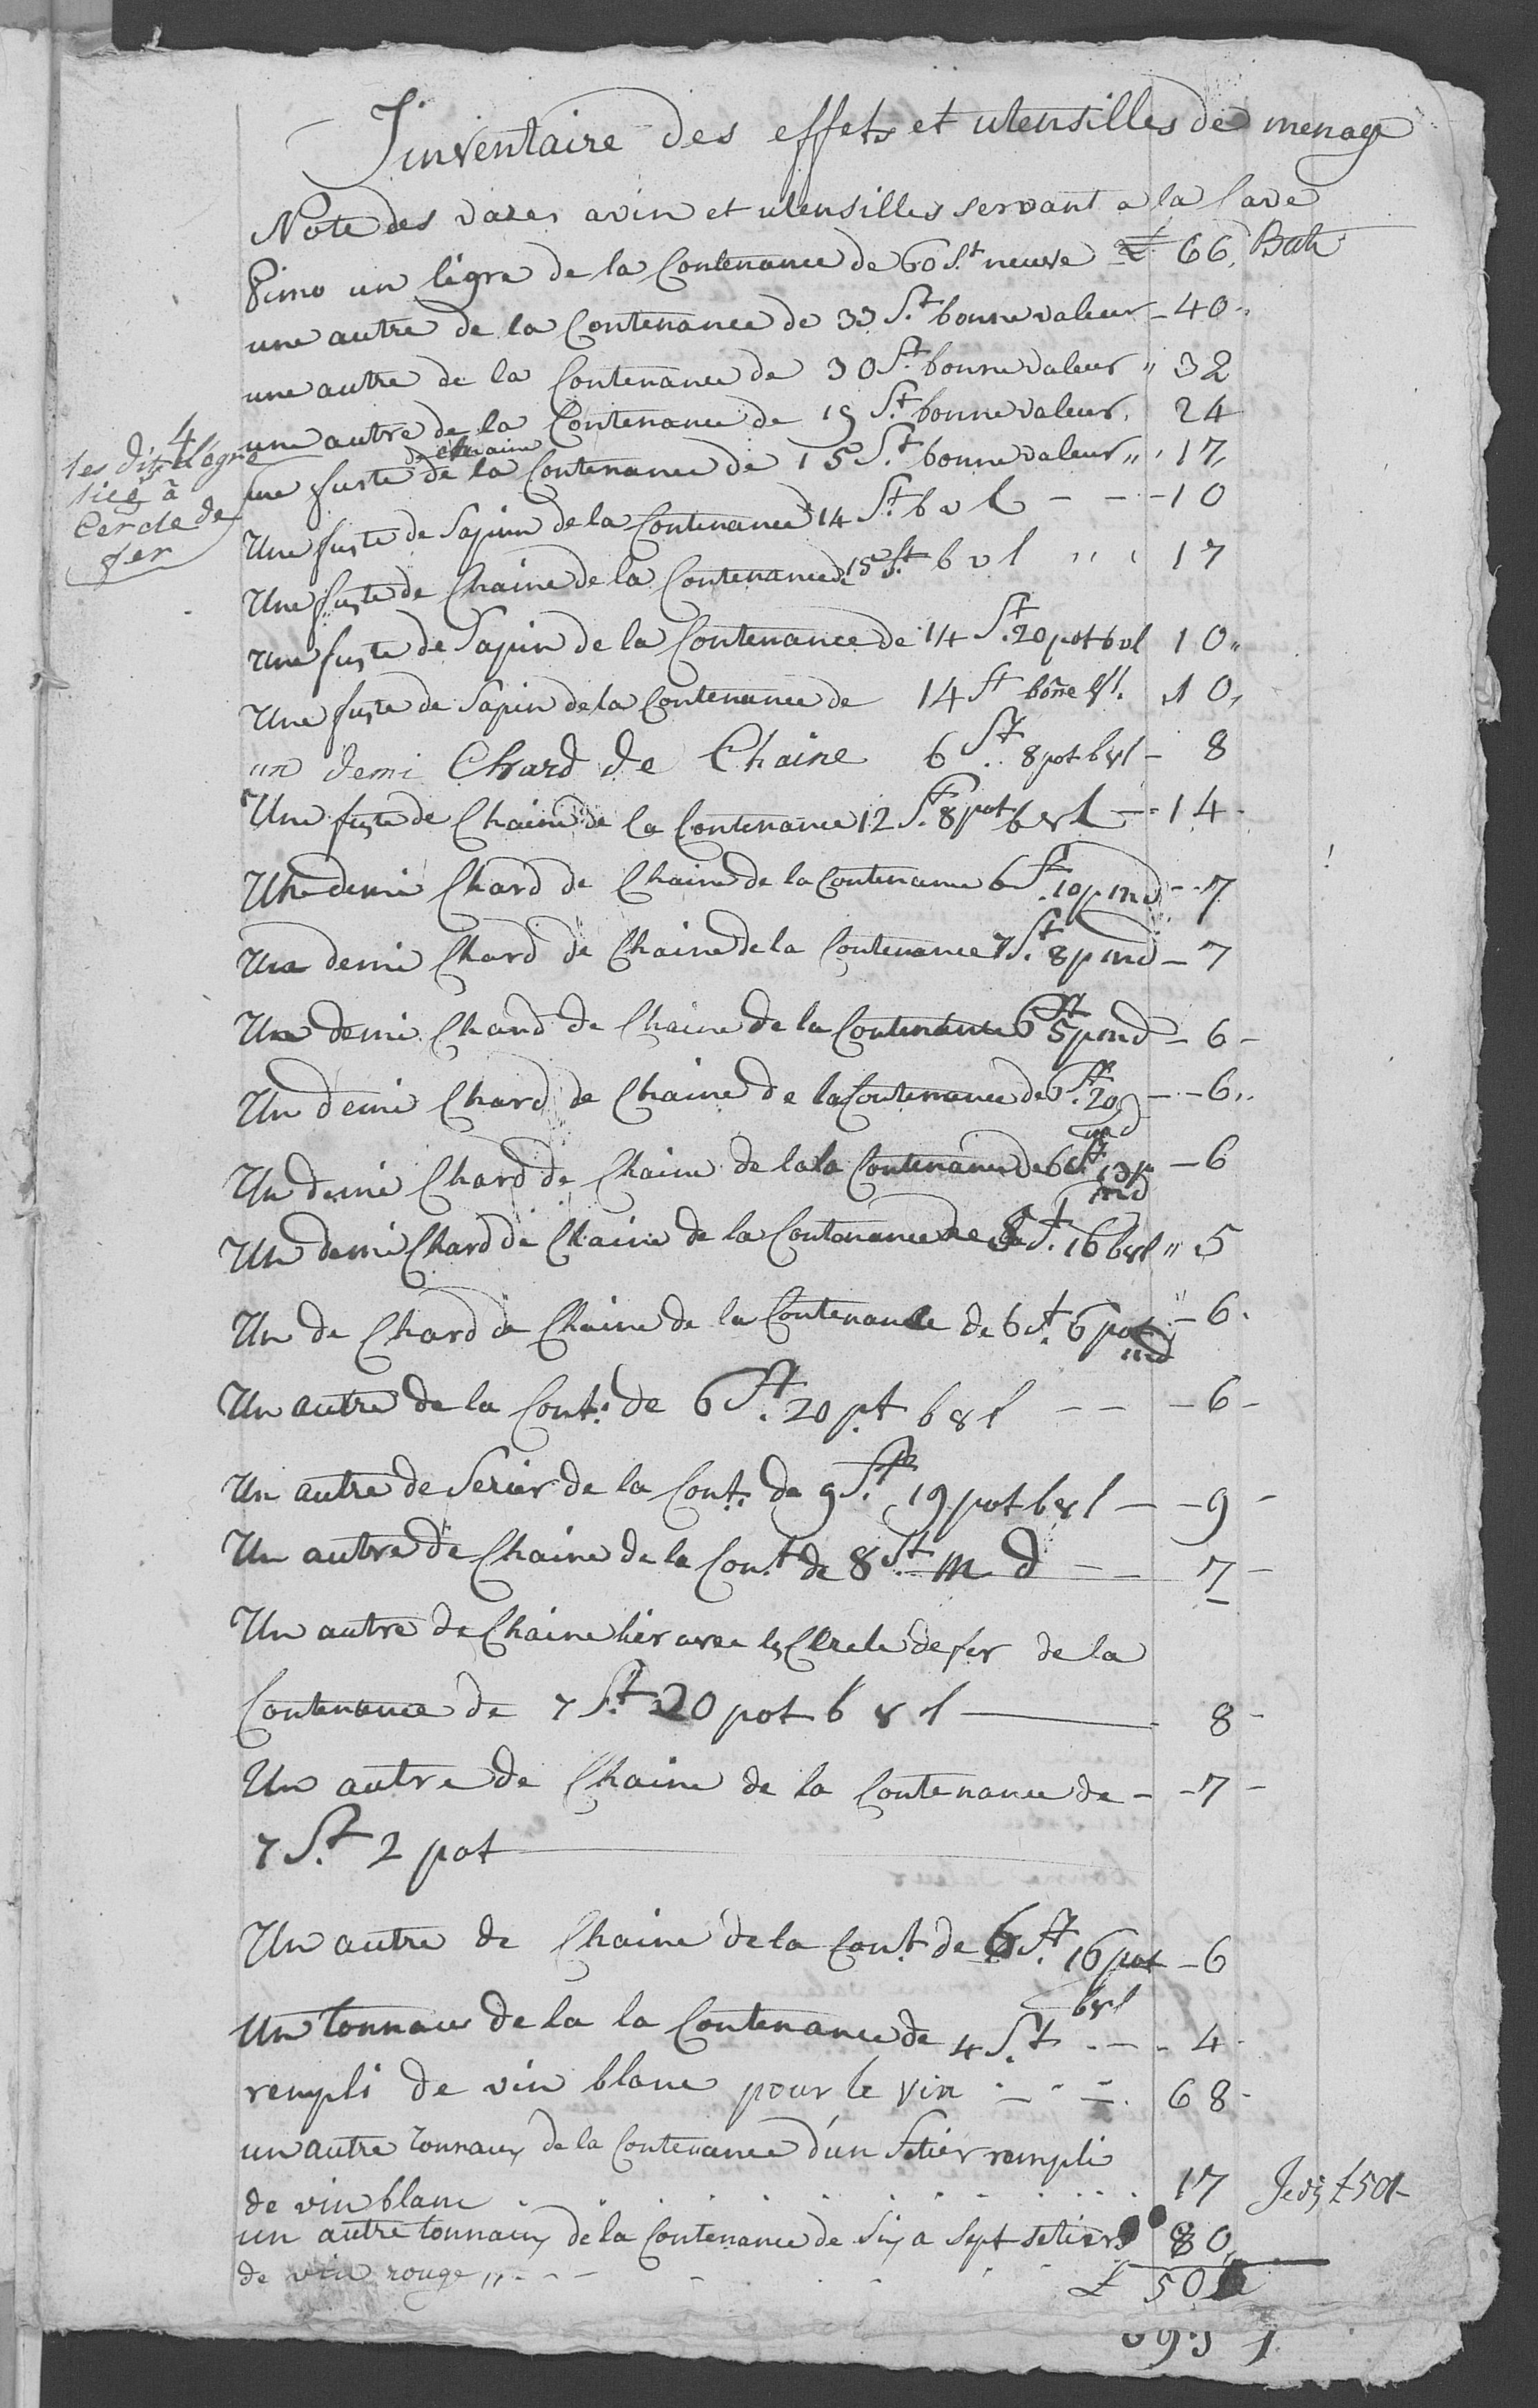 Jinventaire des effets et utensilles de menage
Note des vazes a vin et utensilles servant a la Cave
Pimo un légre de la Contenance de 60 S.t neuve £ 66, Batz
une autre de la Contenance de 33 S.t bonne valeur - 40 "
une autre de la Contenance de 30 S.t bonne valeur " 32
une autre de la Contenance de 19 S.t bonne valeur, 24
4
les dits
à
Cercle de
fer
de chaine
une fuste de la Contenance de 15 S.t bonne valeur " 17,
Une fuste de Sapin de la Contenance 14 S.t b v l - - - 10
Une fuste de Chaine de la Contenance de 15 S.t b v l " 17
Une fuste de Sapin de la Contenance de 14 S.t 20 pot b vl 10 "
Une fuste de Sapin de la Contenance de 14 St bone vl. 10,
un demi Chard de Chaine 6 S.t 8 pot b vl - 8
Une fuste de Chaine de la Contenance 12 S.t 8 pot b v l - 14 -
Un demi Chard de Chaine de la Contenance 6 S.t 10 p md - - 7
Un demi Chard de Chaine de la Contenance 7 S.t 8 p md - 7
Un demi Chard de Chaine de la Contenance 6 St 5 p md - 6 -
Un demi Chard de Chaine de la Contenance de 6 S.t 20 - - 6 "
md
Un demi Chard de Chaine de lala Contenance de 6 S.t 13 p - 6
md
Un demi Chard de Chaine de la Contenance de S.t 16 b vl " 5
Un de Chard de Chaine de la Contenance de 6 S.t 6 pot - 6 .
md
Un autre de la Cont. de 6 S.t 20 p.t b v l - - - 6 -
Un autre de Serier de la Cont. de 9 S.t 19 pot b v l - - 9 -
Un autre de Chaine de la Con.t de 8 S.t m d - - 7 -
Un autre de Chaine lier avec les Cercle de fer de la
Contenance de 7 S.t 20 pot b v l - 8 -
Un autre de Chaine de la Contenance de - - 7 -
7 S.t 2 pot
Un autre de Chaine de la Cont. de 6 S.t 16 pot - 6
b v l
Un tonnau de la la Contenance de 4 S.t - - - 4 -
rempli de vin blanc pour le vin - - - 68 -
un autre tonnaux de la Contenance d'un Setier rempli
de vin blanc . . . . . . . . . . . 17 £ 501-
un autre tonnaux de la Contenance de Six a Sept setiers 80,
de vin rouge " - - -
£ 501